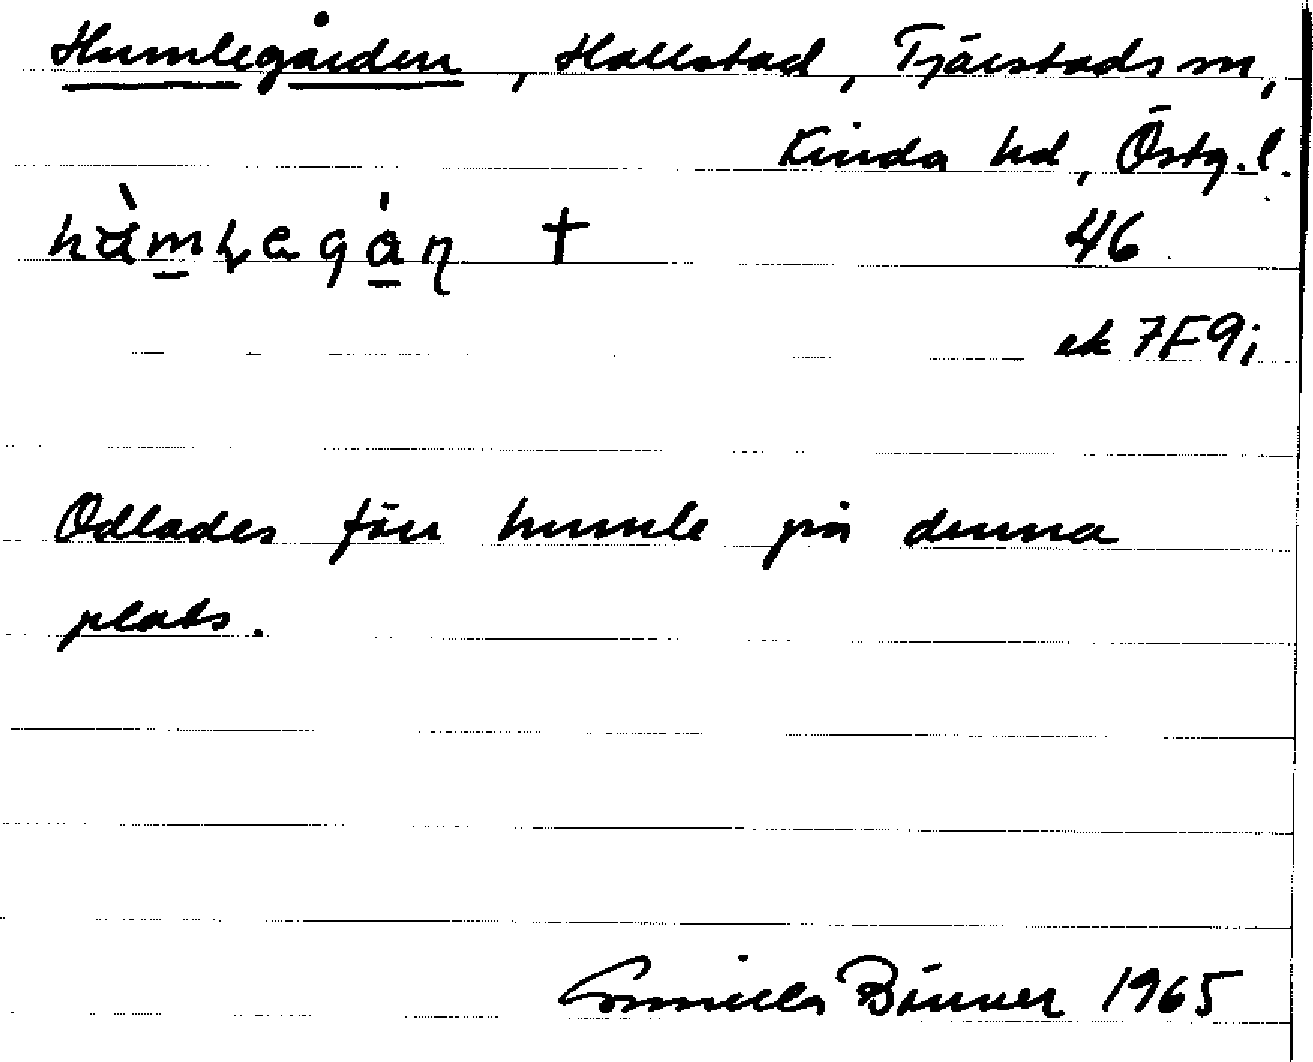 Humlegården, Hallstad, Tjärstads sn,
Kinda hd, Östg.l.
46
ek 7F9i
Odlades förr humle på denna
plats.
Gunilla 1965